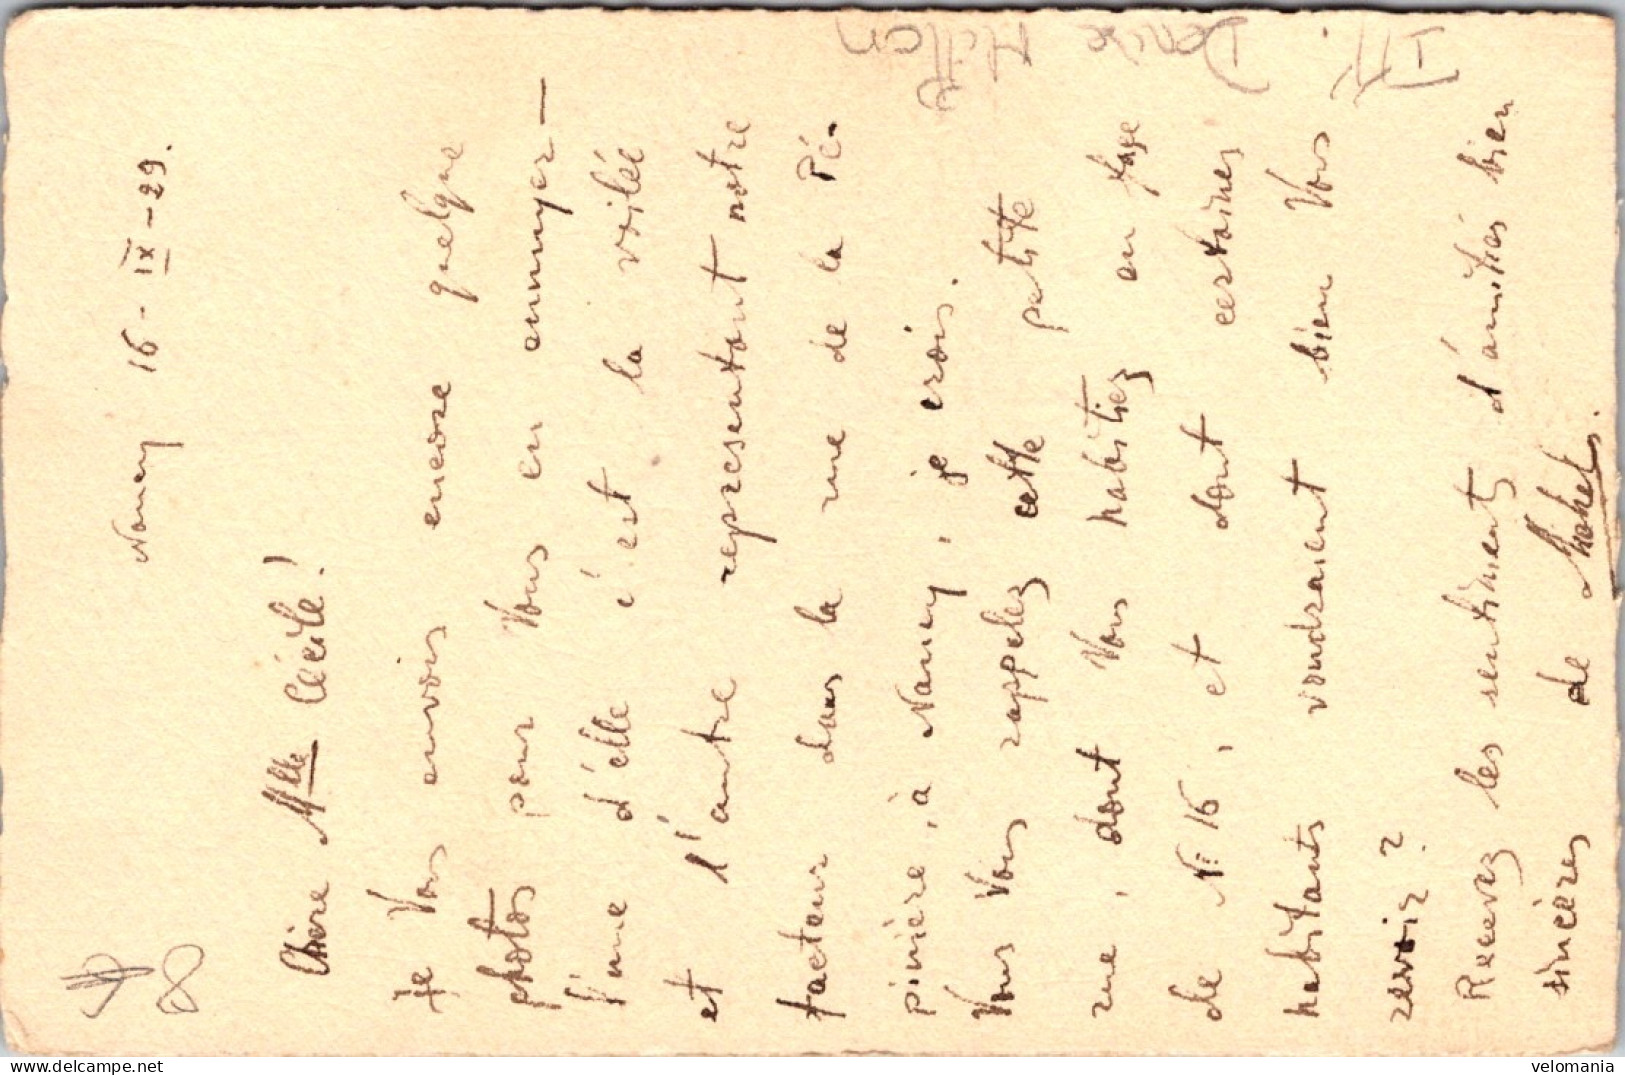 Nancy 16 - IX - 29.
Chère Mlle Cécile!
je Vous envois encore quelque
photos pour Vous en ennuyer —
l'une d'elle c'est la voilée
et l'autre representant notre
facteur dans la rue de la Pé-
pinière, à Nancy, je crois.
Vous Vous rappelez cette petite
rue, dont Vous habitiez en face
de N: 16, et dont certaines
habitants voudraient bien Vous
revoir?
Recevez les sentiments d'amitiés bien
sincères de
8
Denise
velomania